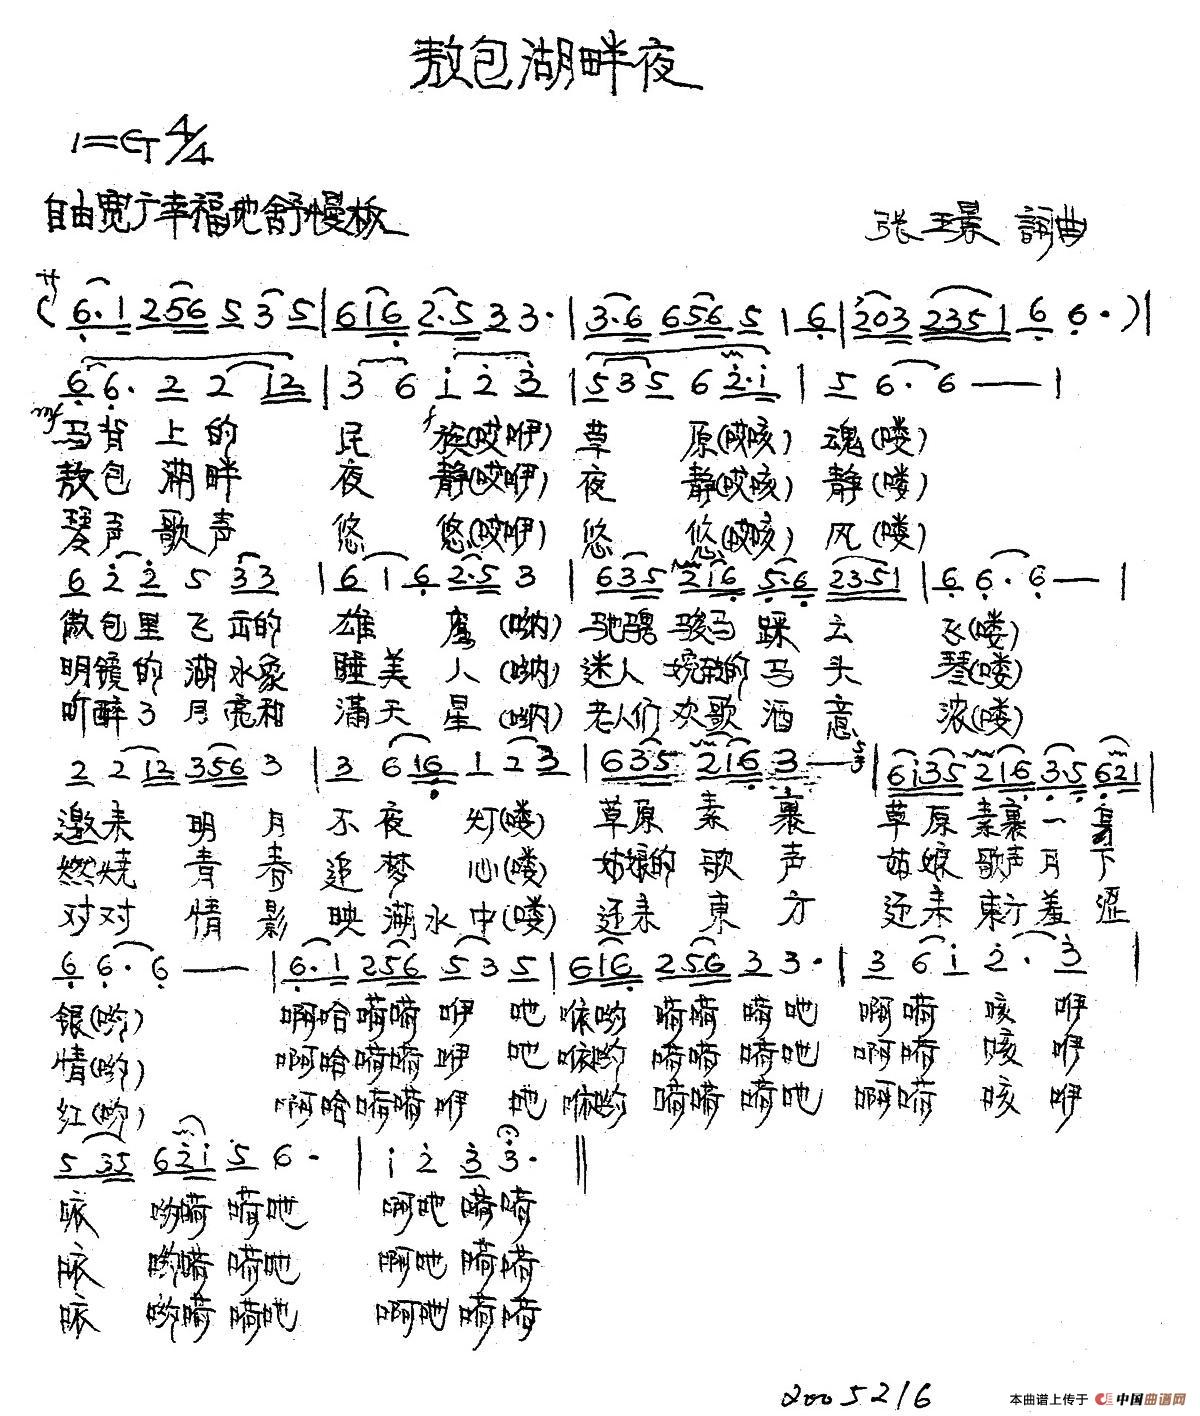 敖包湖畔夜
1=G 4/4
自由宽广幸福地舒慢板
张玉景 詞曲
(6·1 256 5 3 5 | 616 2·5 3 3· | 3·6 656 5 1 6 | 203 2351 6 6·) |
6 6· 2 2 12 | 3 6 1 2 3 | 5 3 5 6 2·1 | 5 6·6 — |
mf 马背上的 民 f 族(哎咿) 草 原(哎咳) 魂(喽)
敖包湖畔 夜 静(哎咿) 夜 静(哎咳) 静(喽)
琴声歌声 悠 悠(哎咿) 悠 悠(哎咳) 风(喽)
6 2 2 5 33 | 6 1 6 2·5 3 | 635 216 5·6 2351 | 6 6·6 — |
傲包里飞出的 雄 鹰 (呐) 驰骋骏马踩云 飞(喽)
明镜的湖水象 睡美人 (呐) 迷人婉转的马头 琴(喽)
听醉了月亮和 满天星 (呐) 老人们欢歌酒意 浓(喽)
2 2 12 356 3 | 3 6 16 1 2 3 | 635 216 3 — | 6135 216 3·5 621 |
邀来明月不夜灯(喽) 草原素裹 草原素裹一身
燃烧青春追梦心(喽) 姑娘的歌声 姑娘歌声月下
对对情影映湖水中(喽) 还来東方 还来東方羞涩
6 6·6 — | 6·1 256 5 3 5 | 616 256 3 3· | 3 6 1 2· 3 |
银(哟) 啊哈嗬嗬咿吔 咴哟嗬嗬嗬吔 啊嗬咳咿
情(哟) 啊哈嗬嗬咿吔 咴哟嗬嗬嗬吔 啊嗬咳咿
红(哟) 啊哈嗬嗬咿吔 咴哟嗬嗬嗬吔 啊嗬咳咿
5 35 621 5 6· | 1 2 3 3· ‖
咳 哟嗬嗬吔 啊吔嗬嗬
咳 哟嗬嗬吔 啊吔嗬嗬
咳 哟嗬嗬吔 啊吔嗬嗬
2005216
本曲谱上传于 中国曲谱网